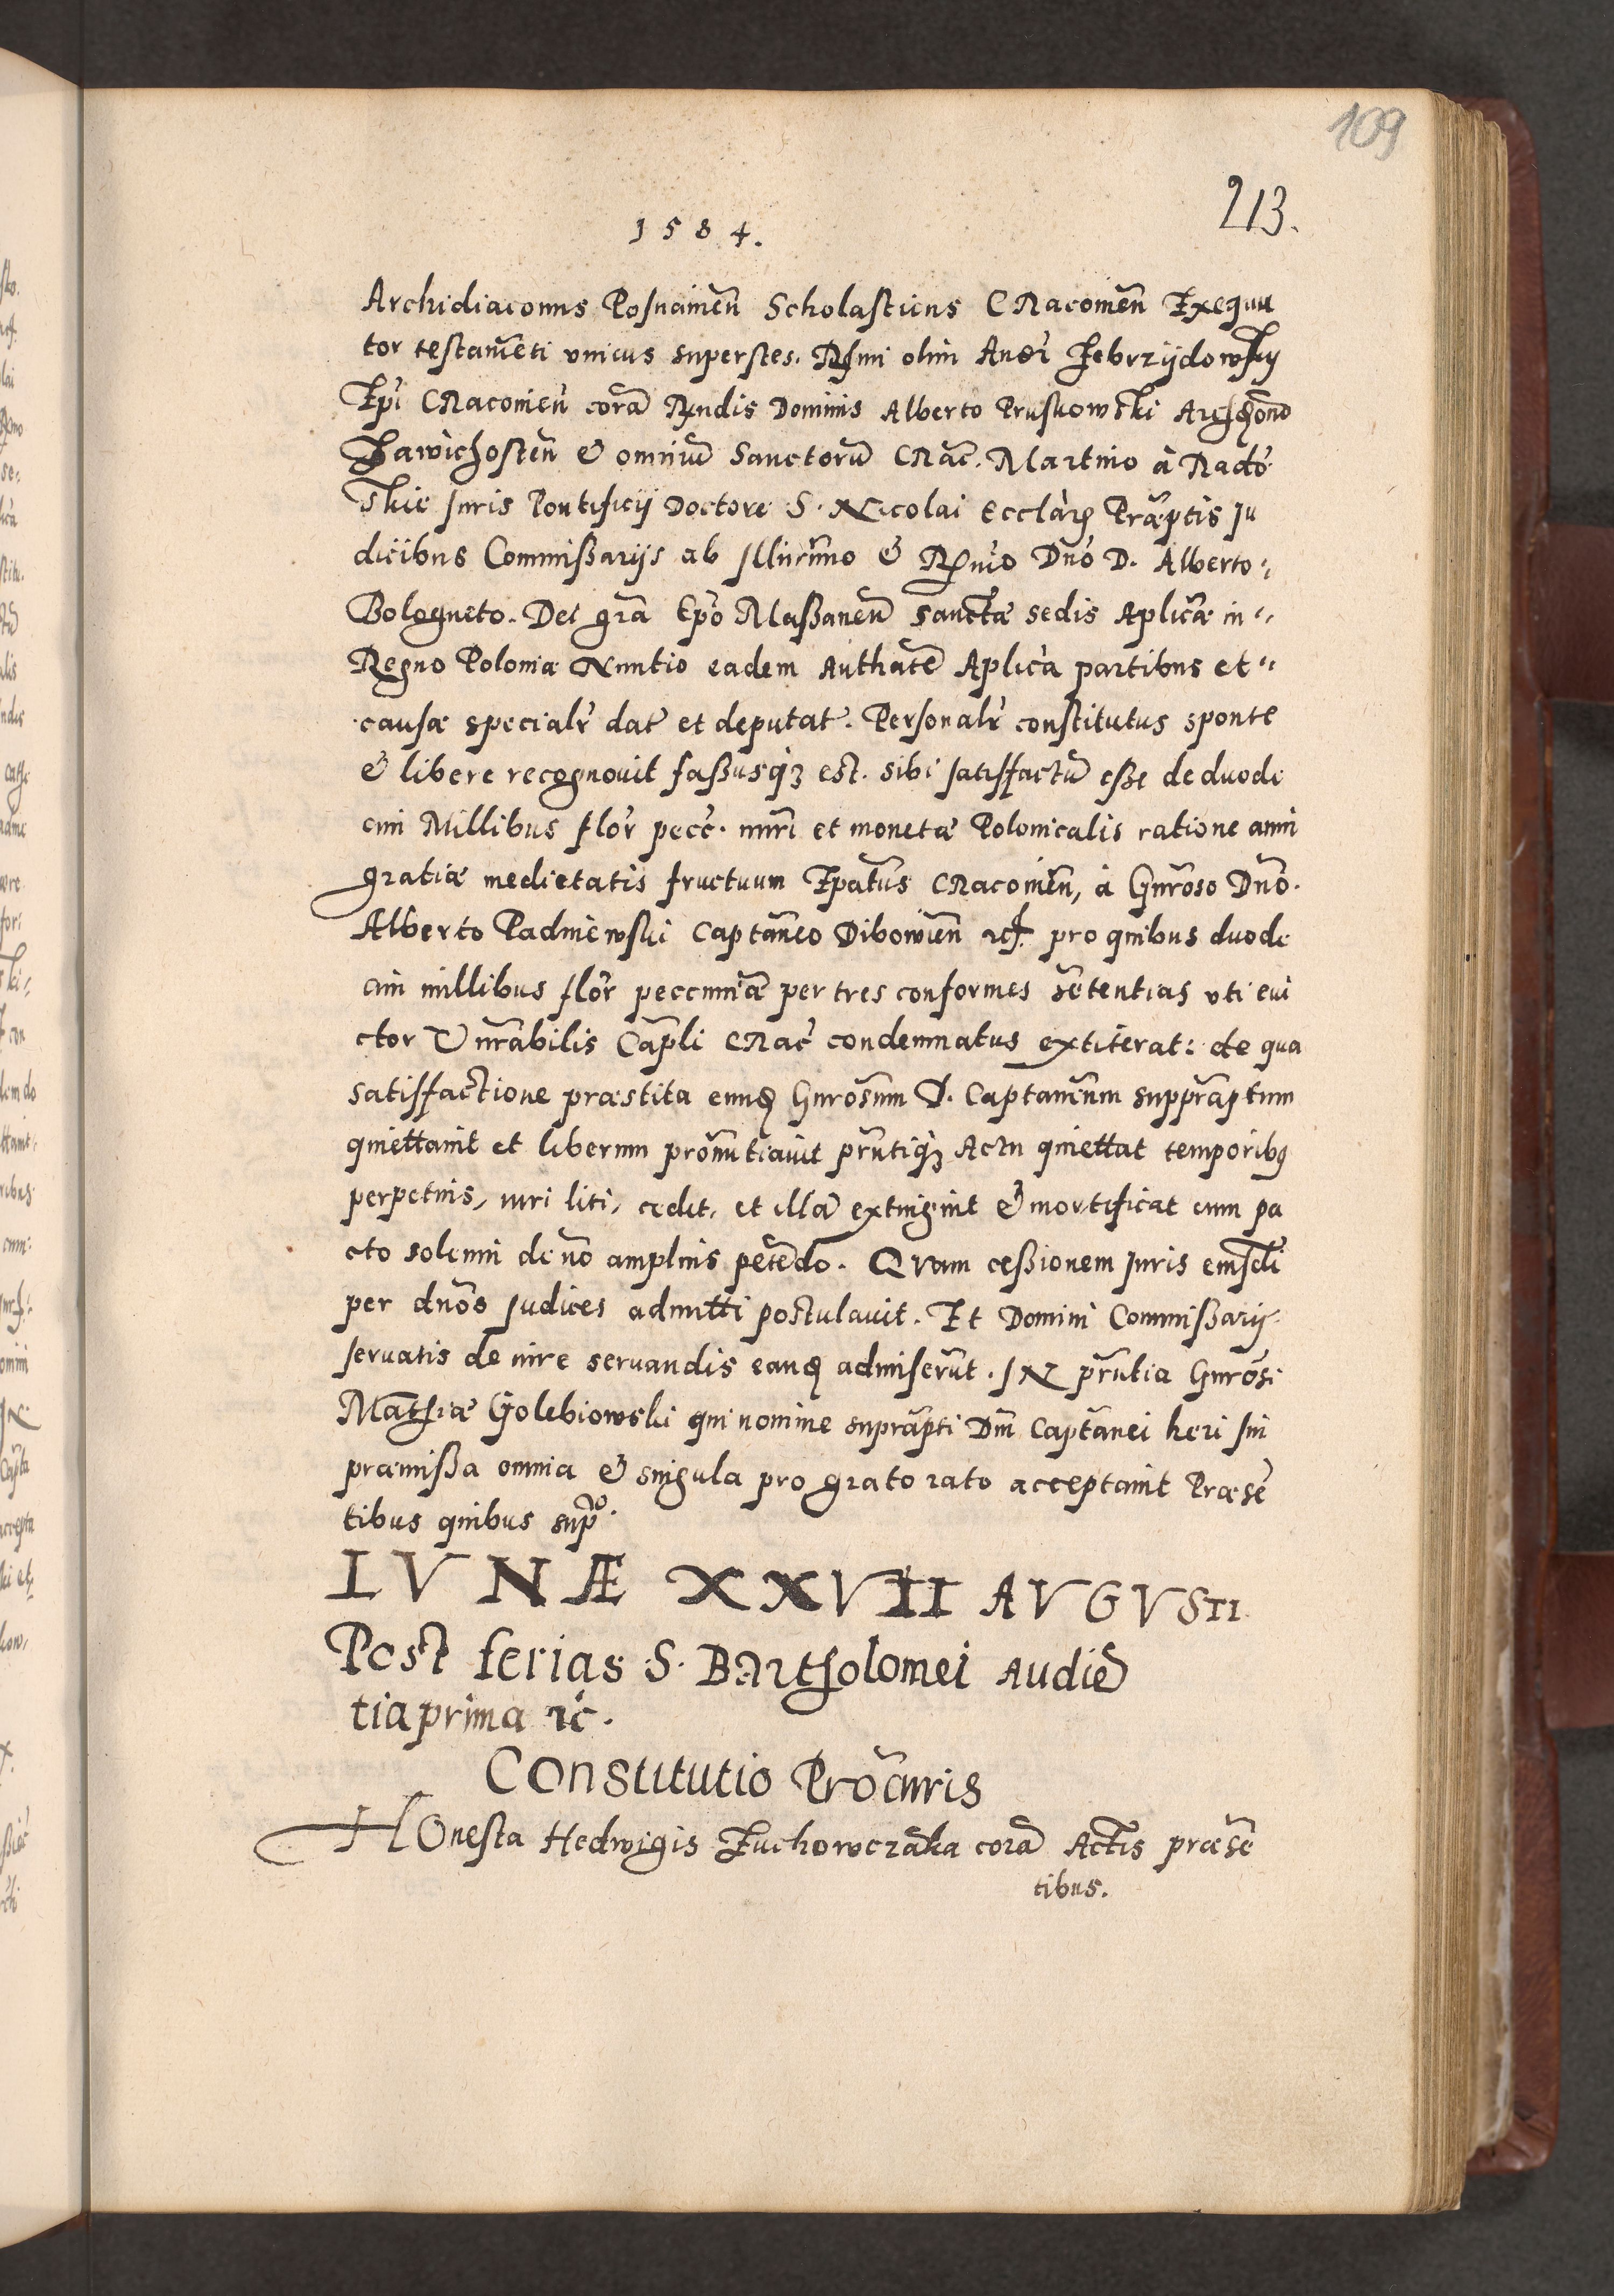 109
213.
1584.
Archidiaconus Posnanień Scholasticus CRacovień Exequu
tor testamēti vnicus superstes. Rſmi olim Andr̃ Zebrzijdowsky
Epĩ CRacovień corā Rndis Dominis Alberto Pruskowski Archidōno
Zawichosteń & omniū Sanctorū CRać. Martino à Rado
skie Juris Pontificij Doctore S. Nicolai Ecclāꝝ Prāeptis Ju
dicibus Commißarijs ab Jllm̃o & Rmo Dno D. Alberto
Bologneto. Dei grā Epõ Maßaneń sanctæ sedis Aplicæ in
Regno Poloniæ Nuntio eadem Authatē Aplica partibus et
causæ specialr̃ dat̃ et deputat̃. Personalr̃ constitutus sponte
& libere recognouit faßusqꝫ est. sibi satisfactū eße de duode
cim Millibus flor̃ pecc̃. nūri et monetæ Polonicalis ratione anni
gratiæ medietatis fructuum Epatūs CRacovień, à Gnroso Dno.
Alberto Padniewski Captāneo Dibowień ꝛc̃. pro quibus duode
cim millibus flor̃ peccuniā per tres conformes sētentias vti eui
ctor Vnrābilis Capli CRać condemnatus extiterat: de qua
satisfactione præstita eundē Gnrosum D. Captaneum suppraptum
quiettauit et liberum pronūtiauit prñtiqꝫ Actu quiettat temporibꝰ
perpetuis, iuri liti, cedit, et illā extinguit & mortificat cum pa
cto solemni de nō amplius petēdo. Quam ceßionem Juris eiusdē
per dnos Judices admitti postulauit. Et Domini Commißarij
seruatis de iure seruandis eandē admiserūt. JN prñtia Gnrosi
Mathiæ Golebiowski qui nomine suprāpti Dni Captānei heri sui
præmißa omnia & singula pro grato rato acceptauit Præsē
tibus quibus supᵒ.
LVNÆ XXVII AVGVSTI
Post ferias S. Bartholomei Audiē
tia prima ꝛc̃.
Constitutio Procūris
HOnesta Hedwigis Zuchowczāka corā Actis præsē
tibus.